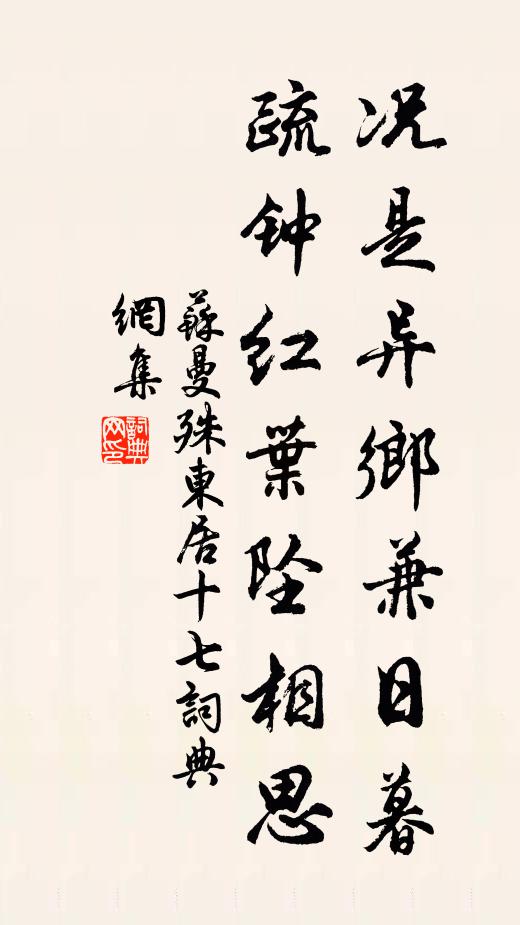 况是异鄉兼日暮
疏钟红葉坠相思
蘇曼殊東居十七詞典
網集
詞典网印